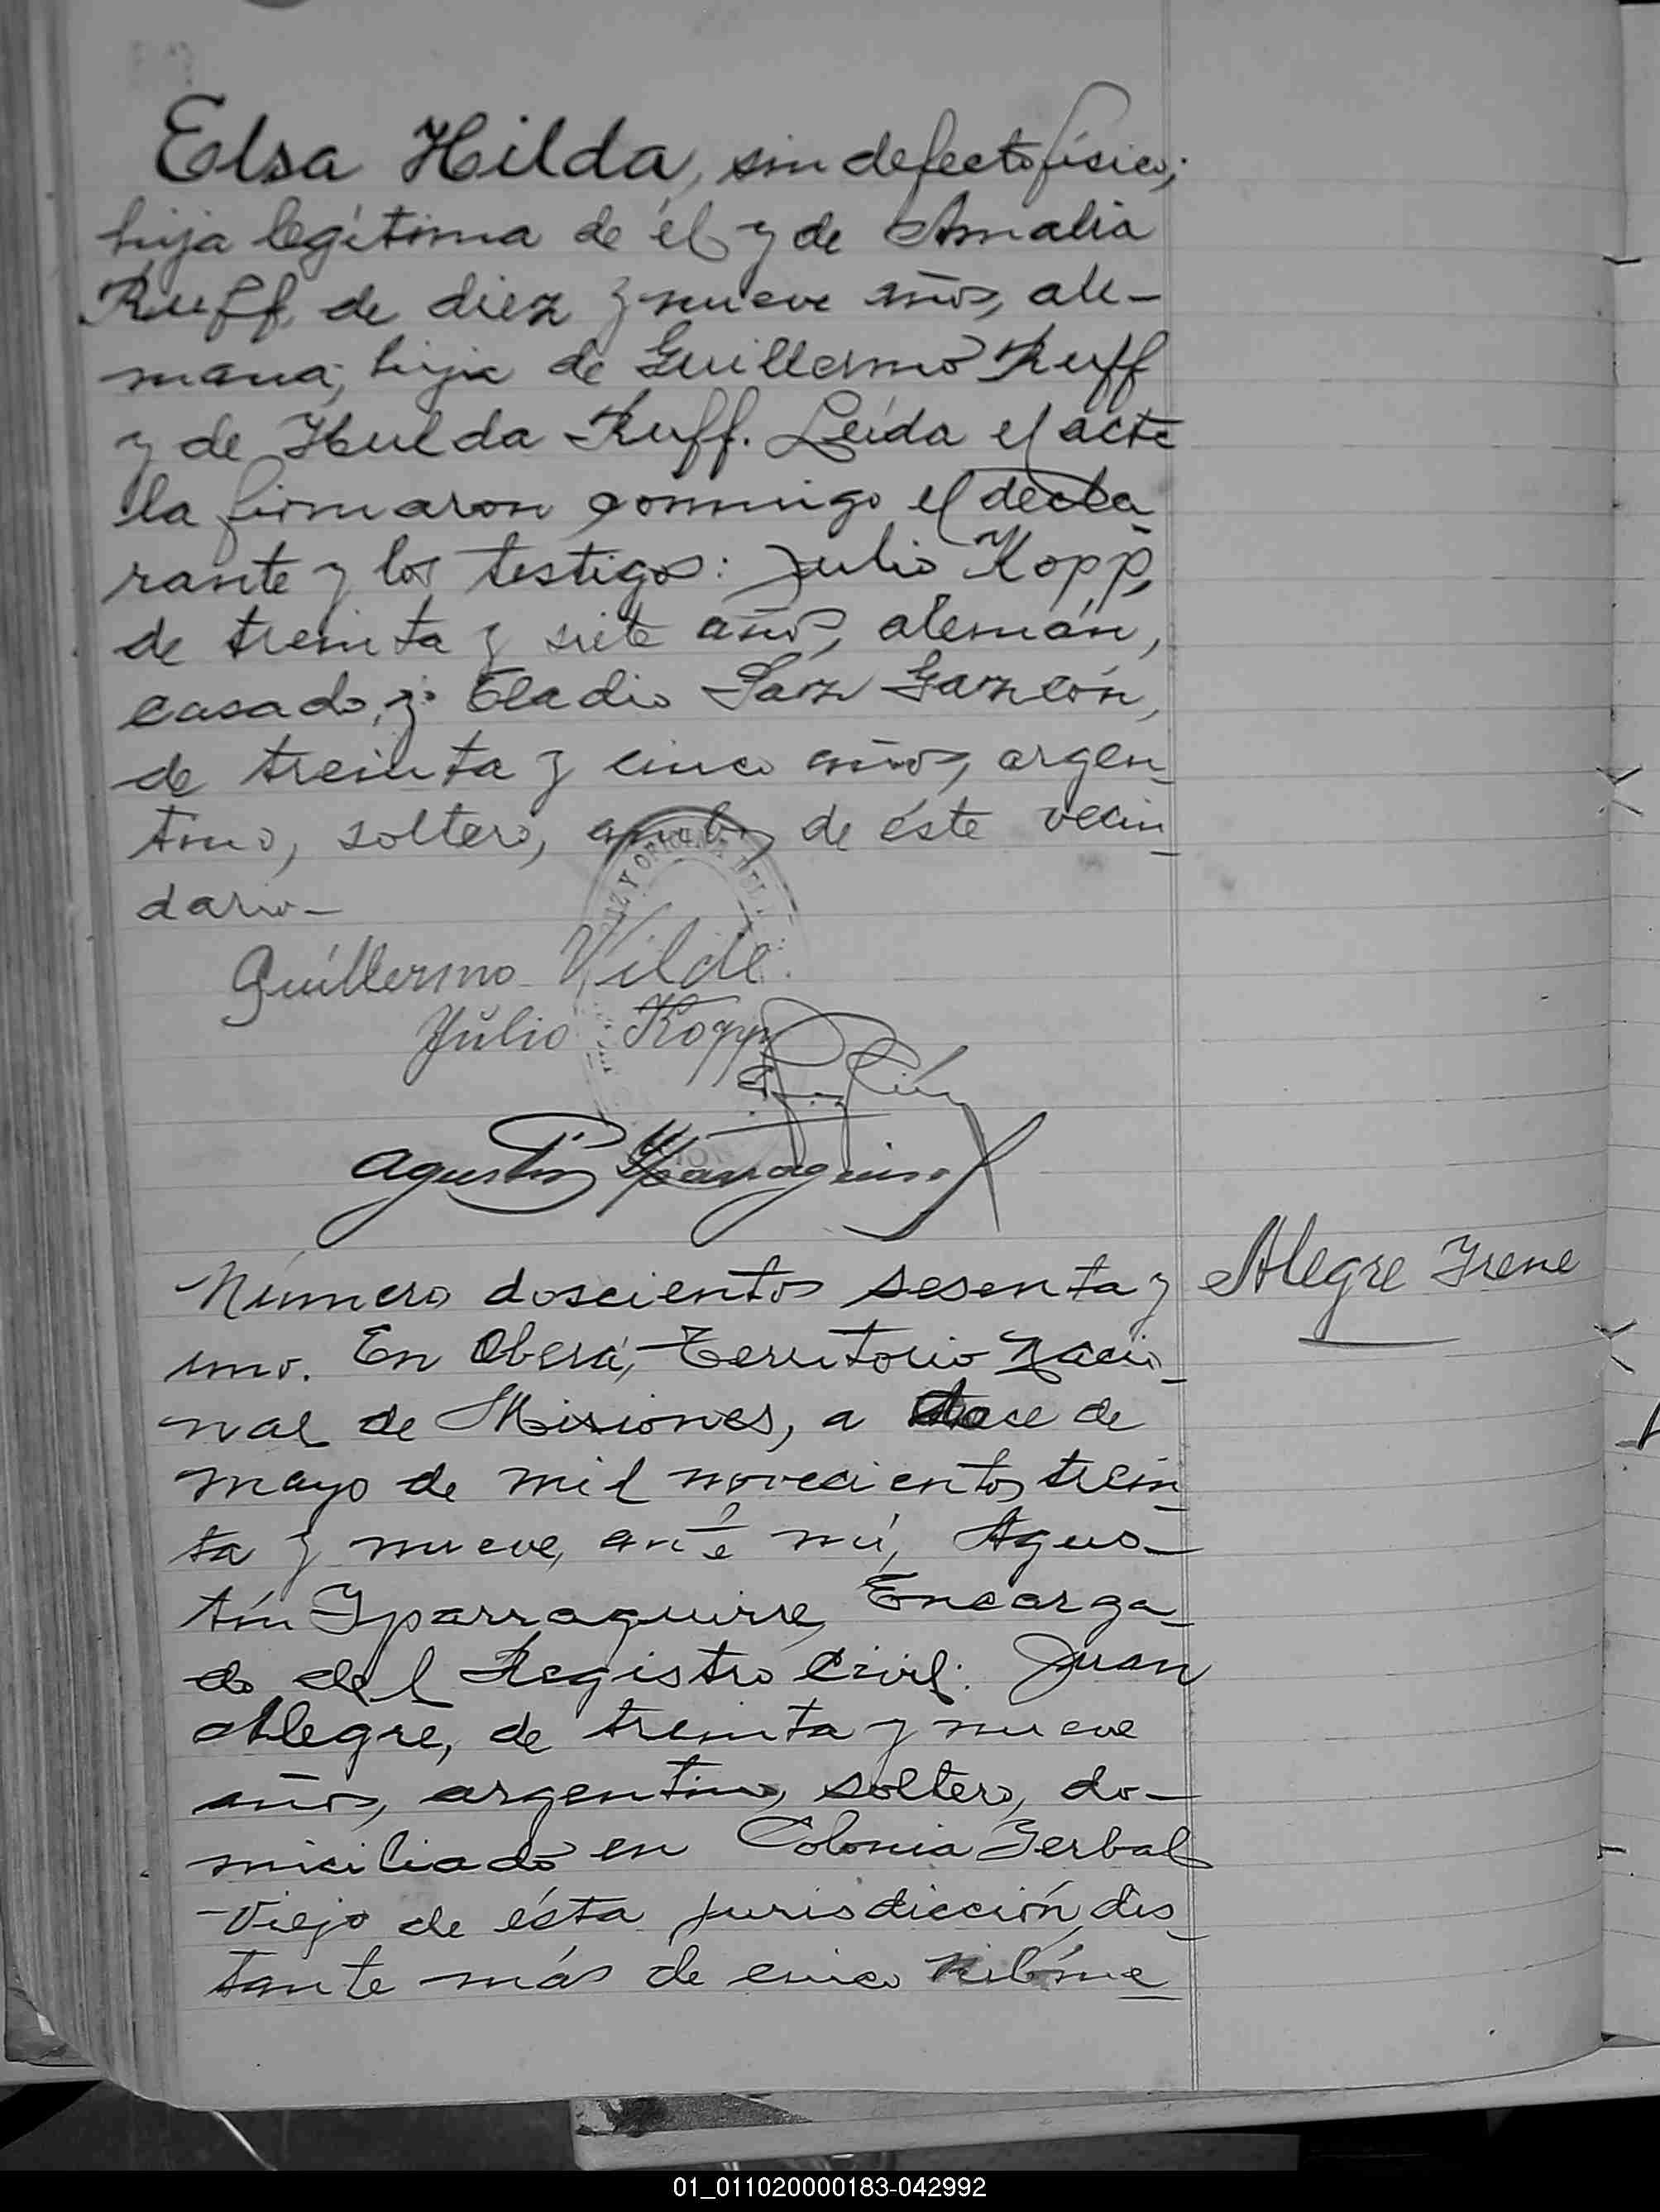 Elsa Hilda, sin defecto físico;
hija legítima de él y de Amalia
Ruff, de diez y nueve años, ale-
mana; hija de Guillermo Ruff
y de Hulda Ruff. Leída el acta
la firmaron conmigo el decla-
rante y los testigos: Julio Kopp,
de treinta y siete años, alemán,
casado, y: Eladio Saz Garzón,
de treinta y cinco años, argen-
tino, soltero, ambos de éste vecin-
dario-
Guillermo Vilde.
Julio Kopp
Agustín Yparraguirre
Número doscientos sesenta y
uno. En Oberá, Territorio Nacio-
nal de Misiones, a doce de
mayo de mil novecientos trein-
ta y nueve, ante mí, Agus-
tín Yparraguirre, Encarga-
do del Registro Civil: Juan
Alegre, de treinta y nueve
años, argentino, soltero, do-
miciliado en Colonia Yerbal
Viejo de ésta jurisdicción, dis-
tante más de cinco kilóme-
Alegre Irene
01_011020000183-042992